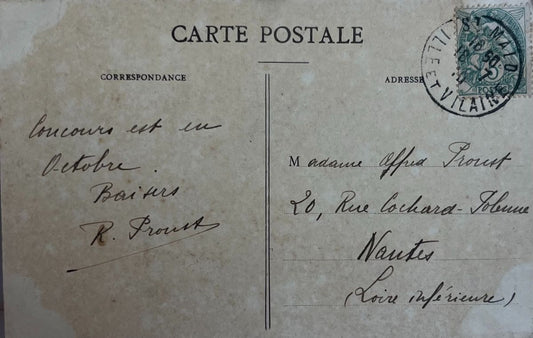 CARTE POSTALE
CORRESPONDANCE
ADRESSE
ST MALO
ILLE ET VILAINE
Concours est en
Octobre.
Baisers
R. Proust
Madame Alfred Proust
20, Rue Cochard-
Nantes
(Loire inférieure)